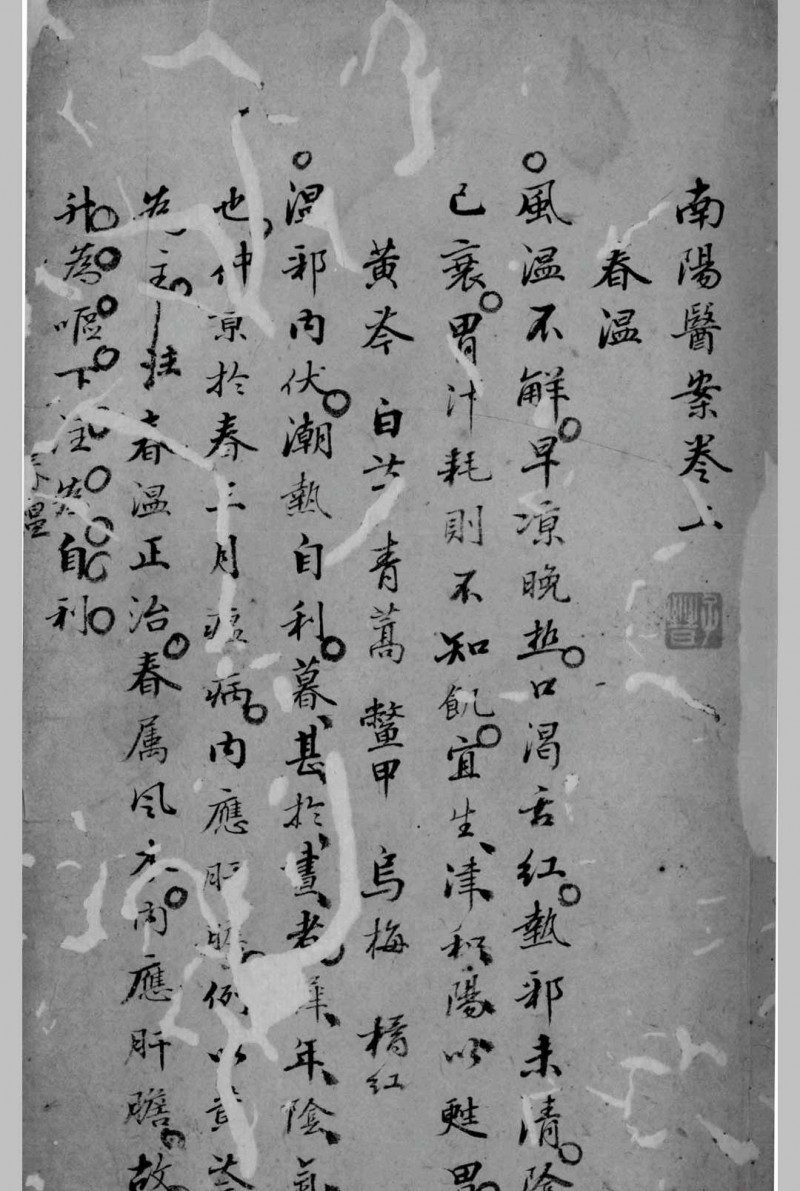 南陽醫案卷上
春温
風温不解早凉晚热口渴舌红熱邪未清陰
已衰胃汁耗則不知飢宜生津和陽以甦胃
黄芩 白芍 青蒿 鱉甲 烏梅 橘红
温邪内伏潮熱自利暮甚於晝者年陰氣
也仲凉於春三月瘟病内應肝膽例以黄芩
為主 春温正治春属风内應肝膽故
升為嘔下注為自利
春温